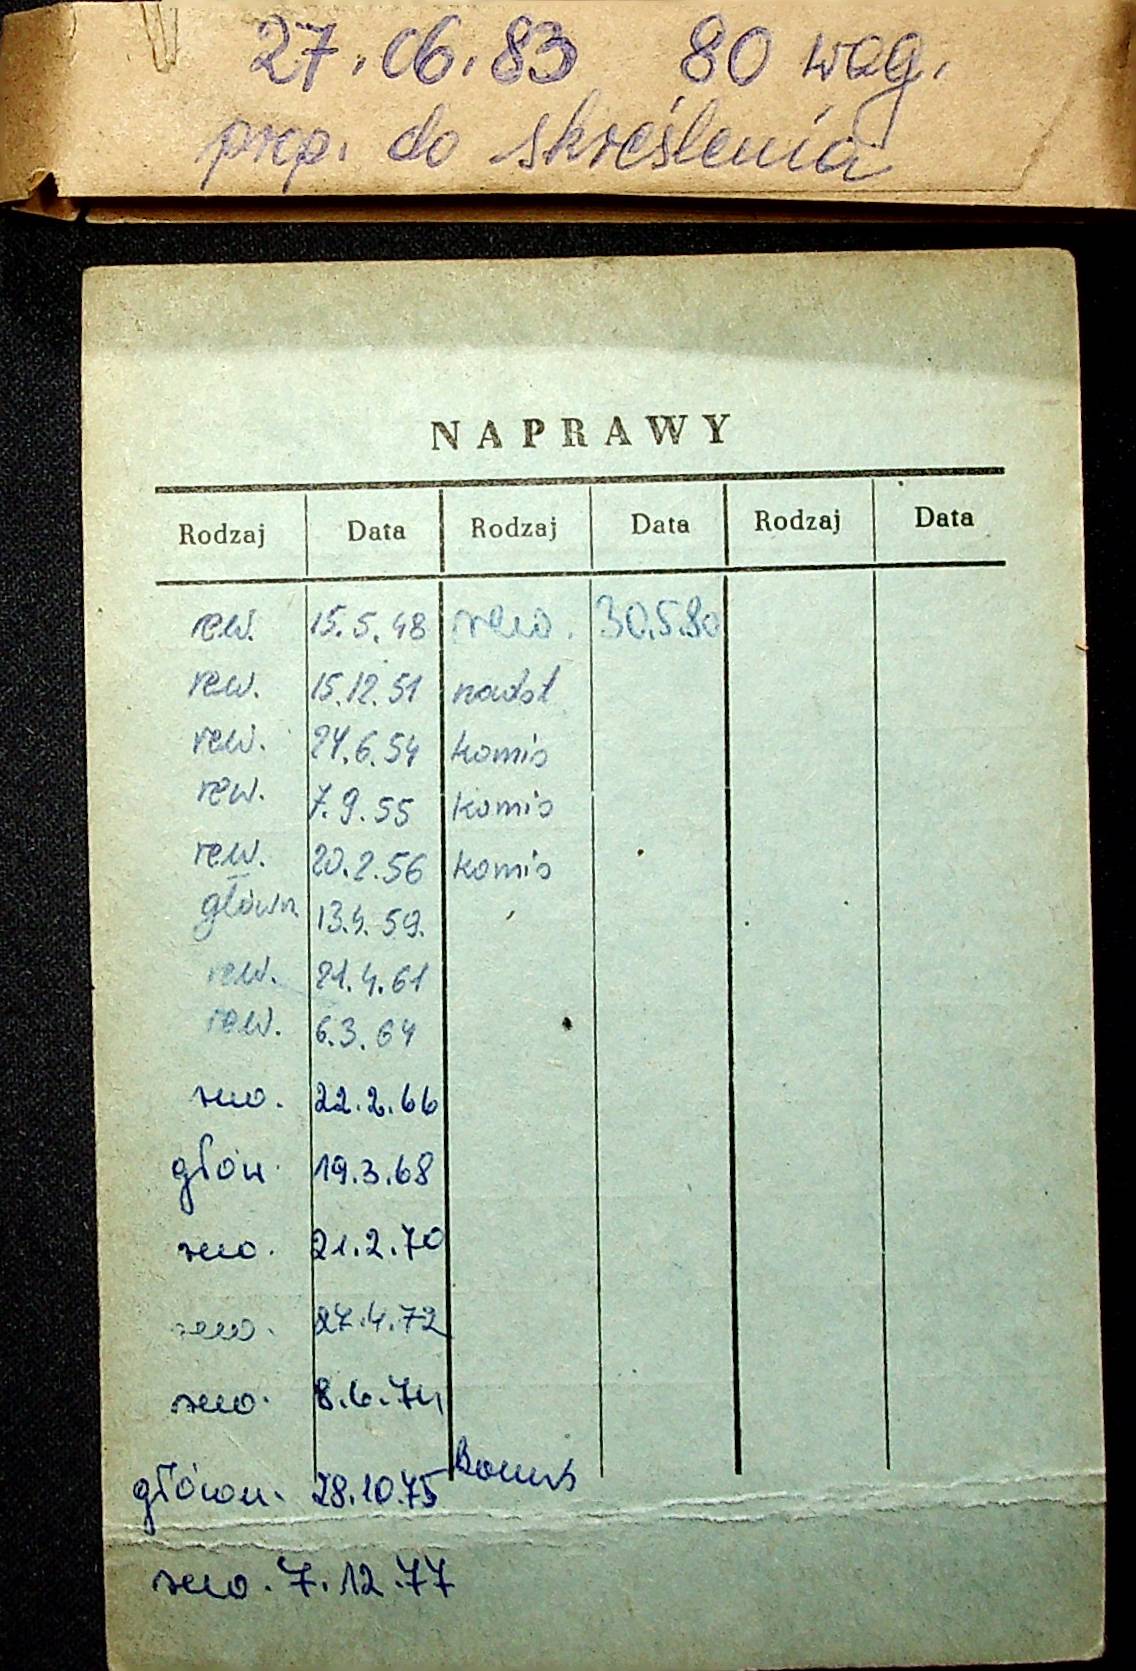 27.06.83 80 wag.
prep. do skreślenia
NAPRAWY
Rodzaj Data Rodzaj Data Rodzaj Data
rew. 15.5.48 rew. 30.5.80
rew. 15.12.51 nadst
rew. 24.6.54 komis
rew. 7.9.55 komis
rew. 20.2.56 komis
główn 13.4.59.
rew. 21.4.61
rew. 6.3.64
rew. 22.2.66
głów. 19.3.68
rew. 21.2.70
rew. 27.4.72
rew. 8.6.74
główn. 28.10.75 komis
rew. 7.12.77